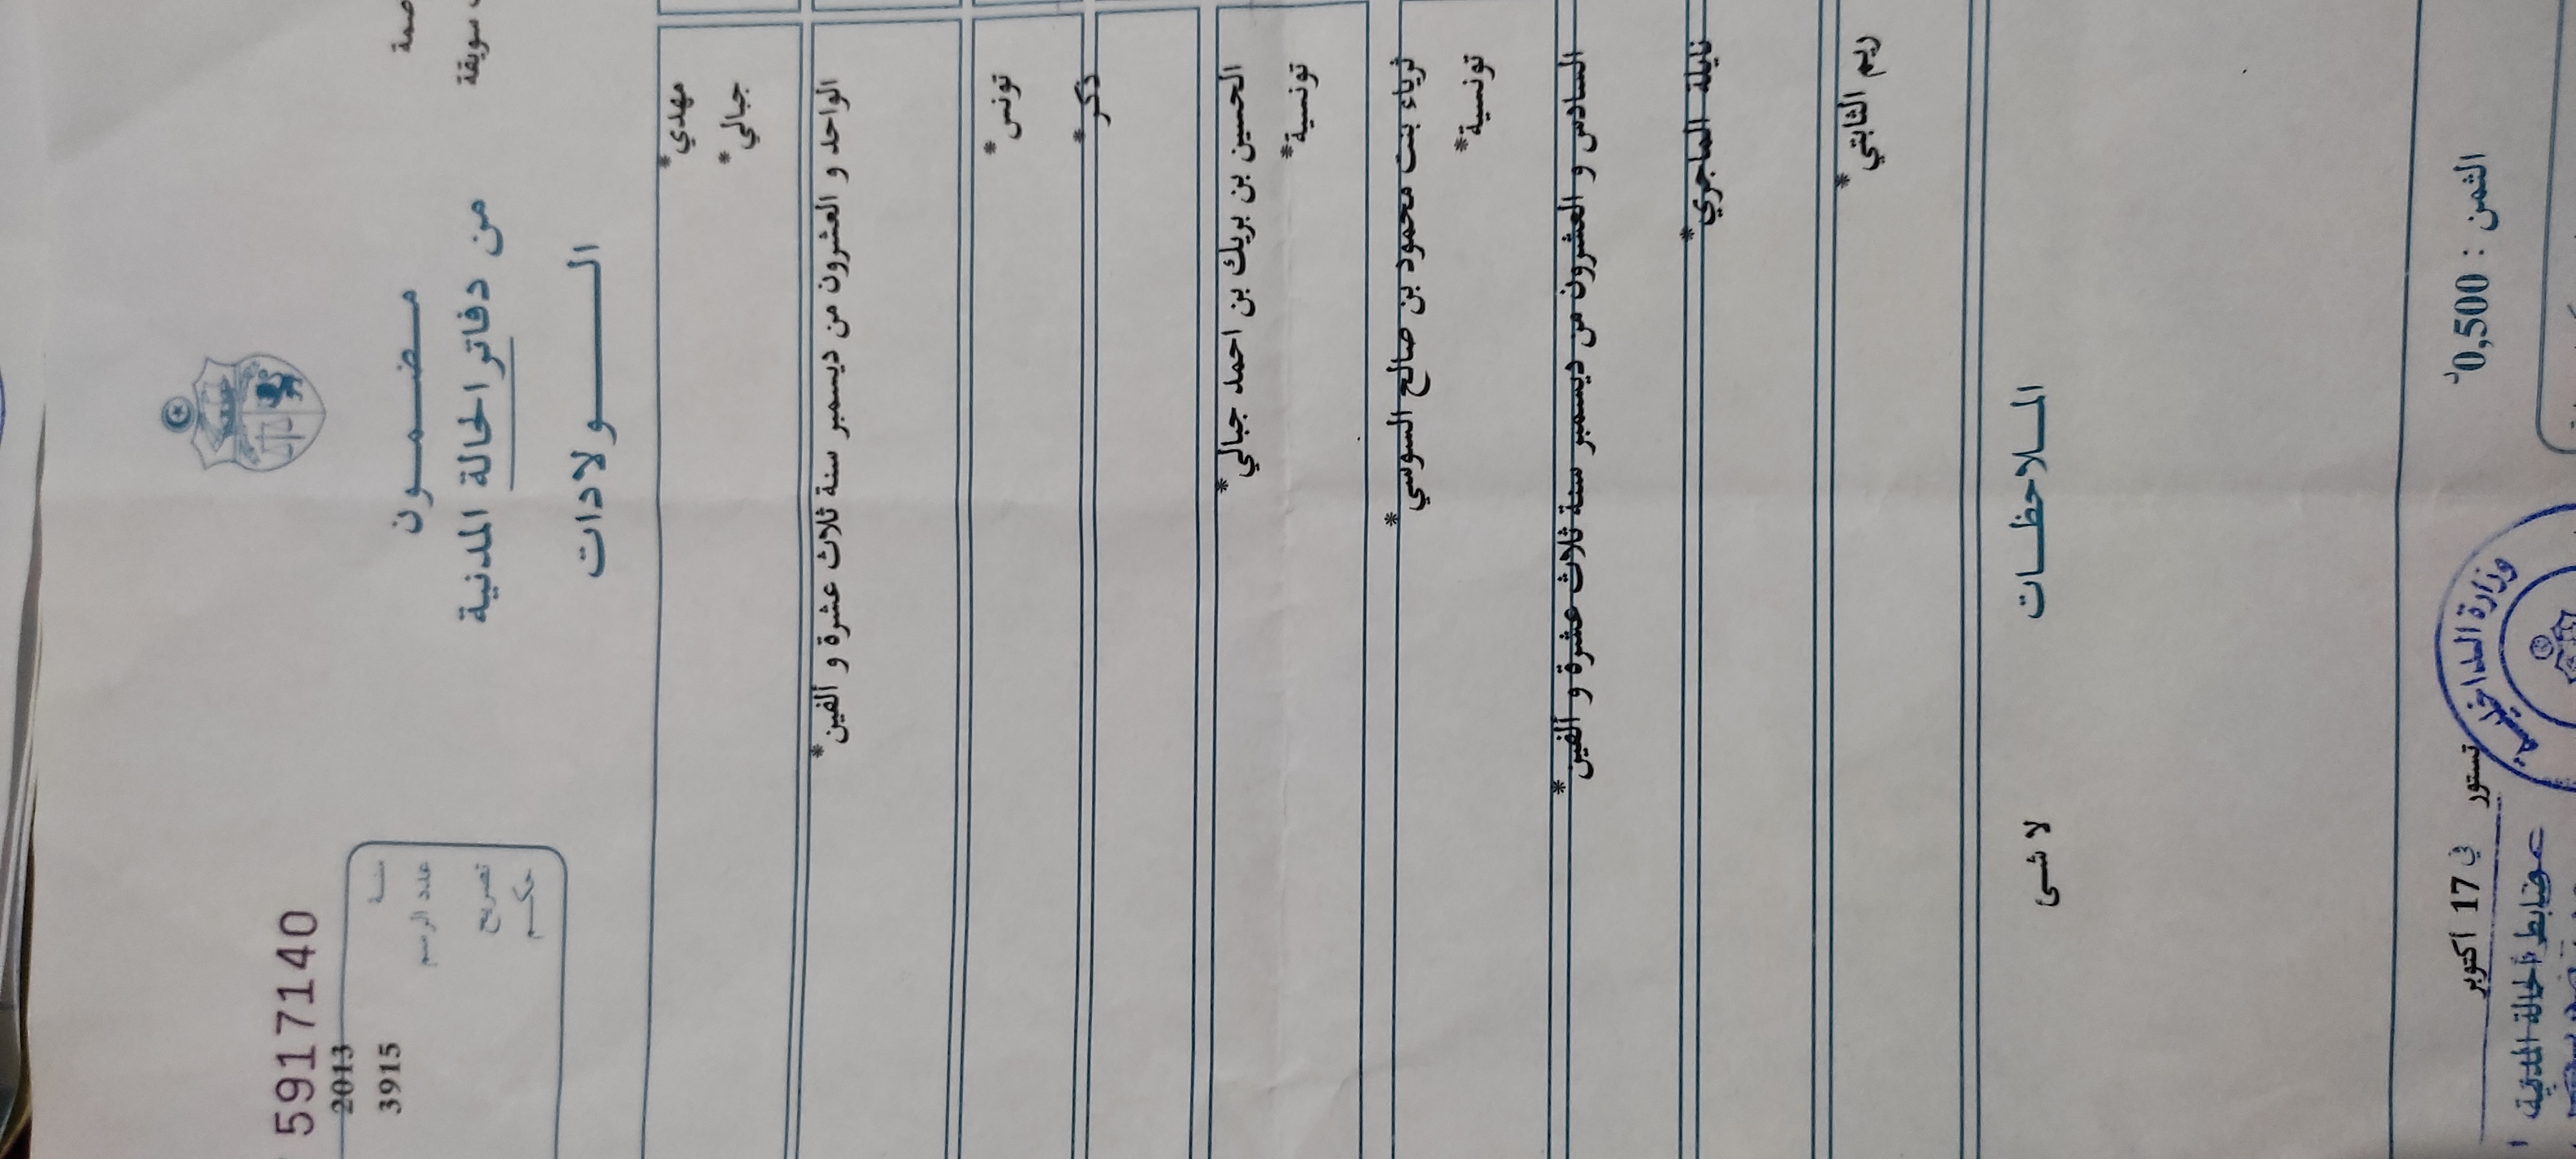 5917140
2013
3915
سنة
عدد الرسم
تصريح
حكم
مضمون
من دفاتر الحالة المدنية
الولادات
سويقة
مهدي*
جبالي*
الواحد و العشرون من ديسمبر سنة ثلاث عشرة و ألفين*
تونس*
ذكر*
الحسين بن بريك بن احمد جبالي*
تونسية*
ثرياء بنت محمود بن صالح السوسي*
تونسية*
السادس و العشرون من ديسمبر سنة ثلاث عشرة و ألفين*
نايلة الماجري*
ريم الثابتي*
الملاحظات
لا شى
الثمن : 0,500د
تستور في 17 أكتوبر
وزارة الداخلية
ضابط الحالة المدنية